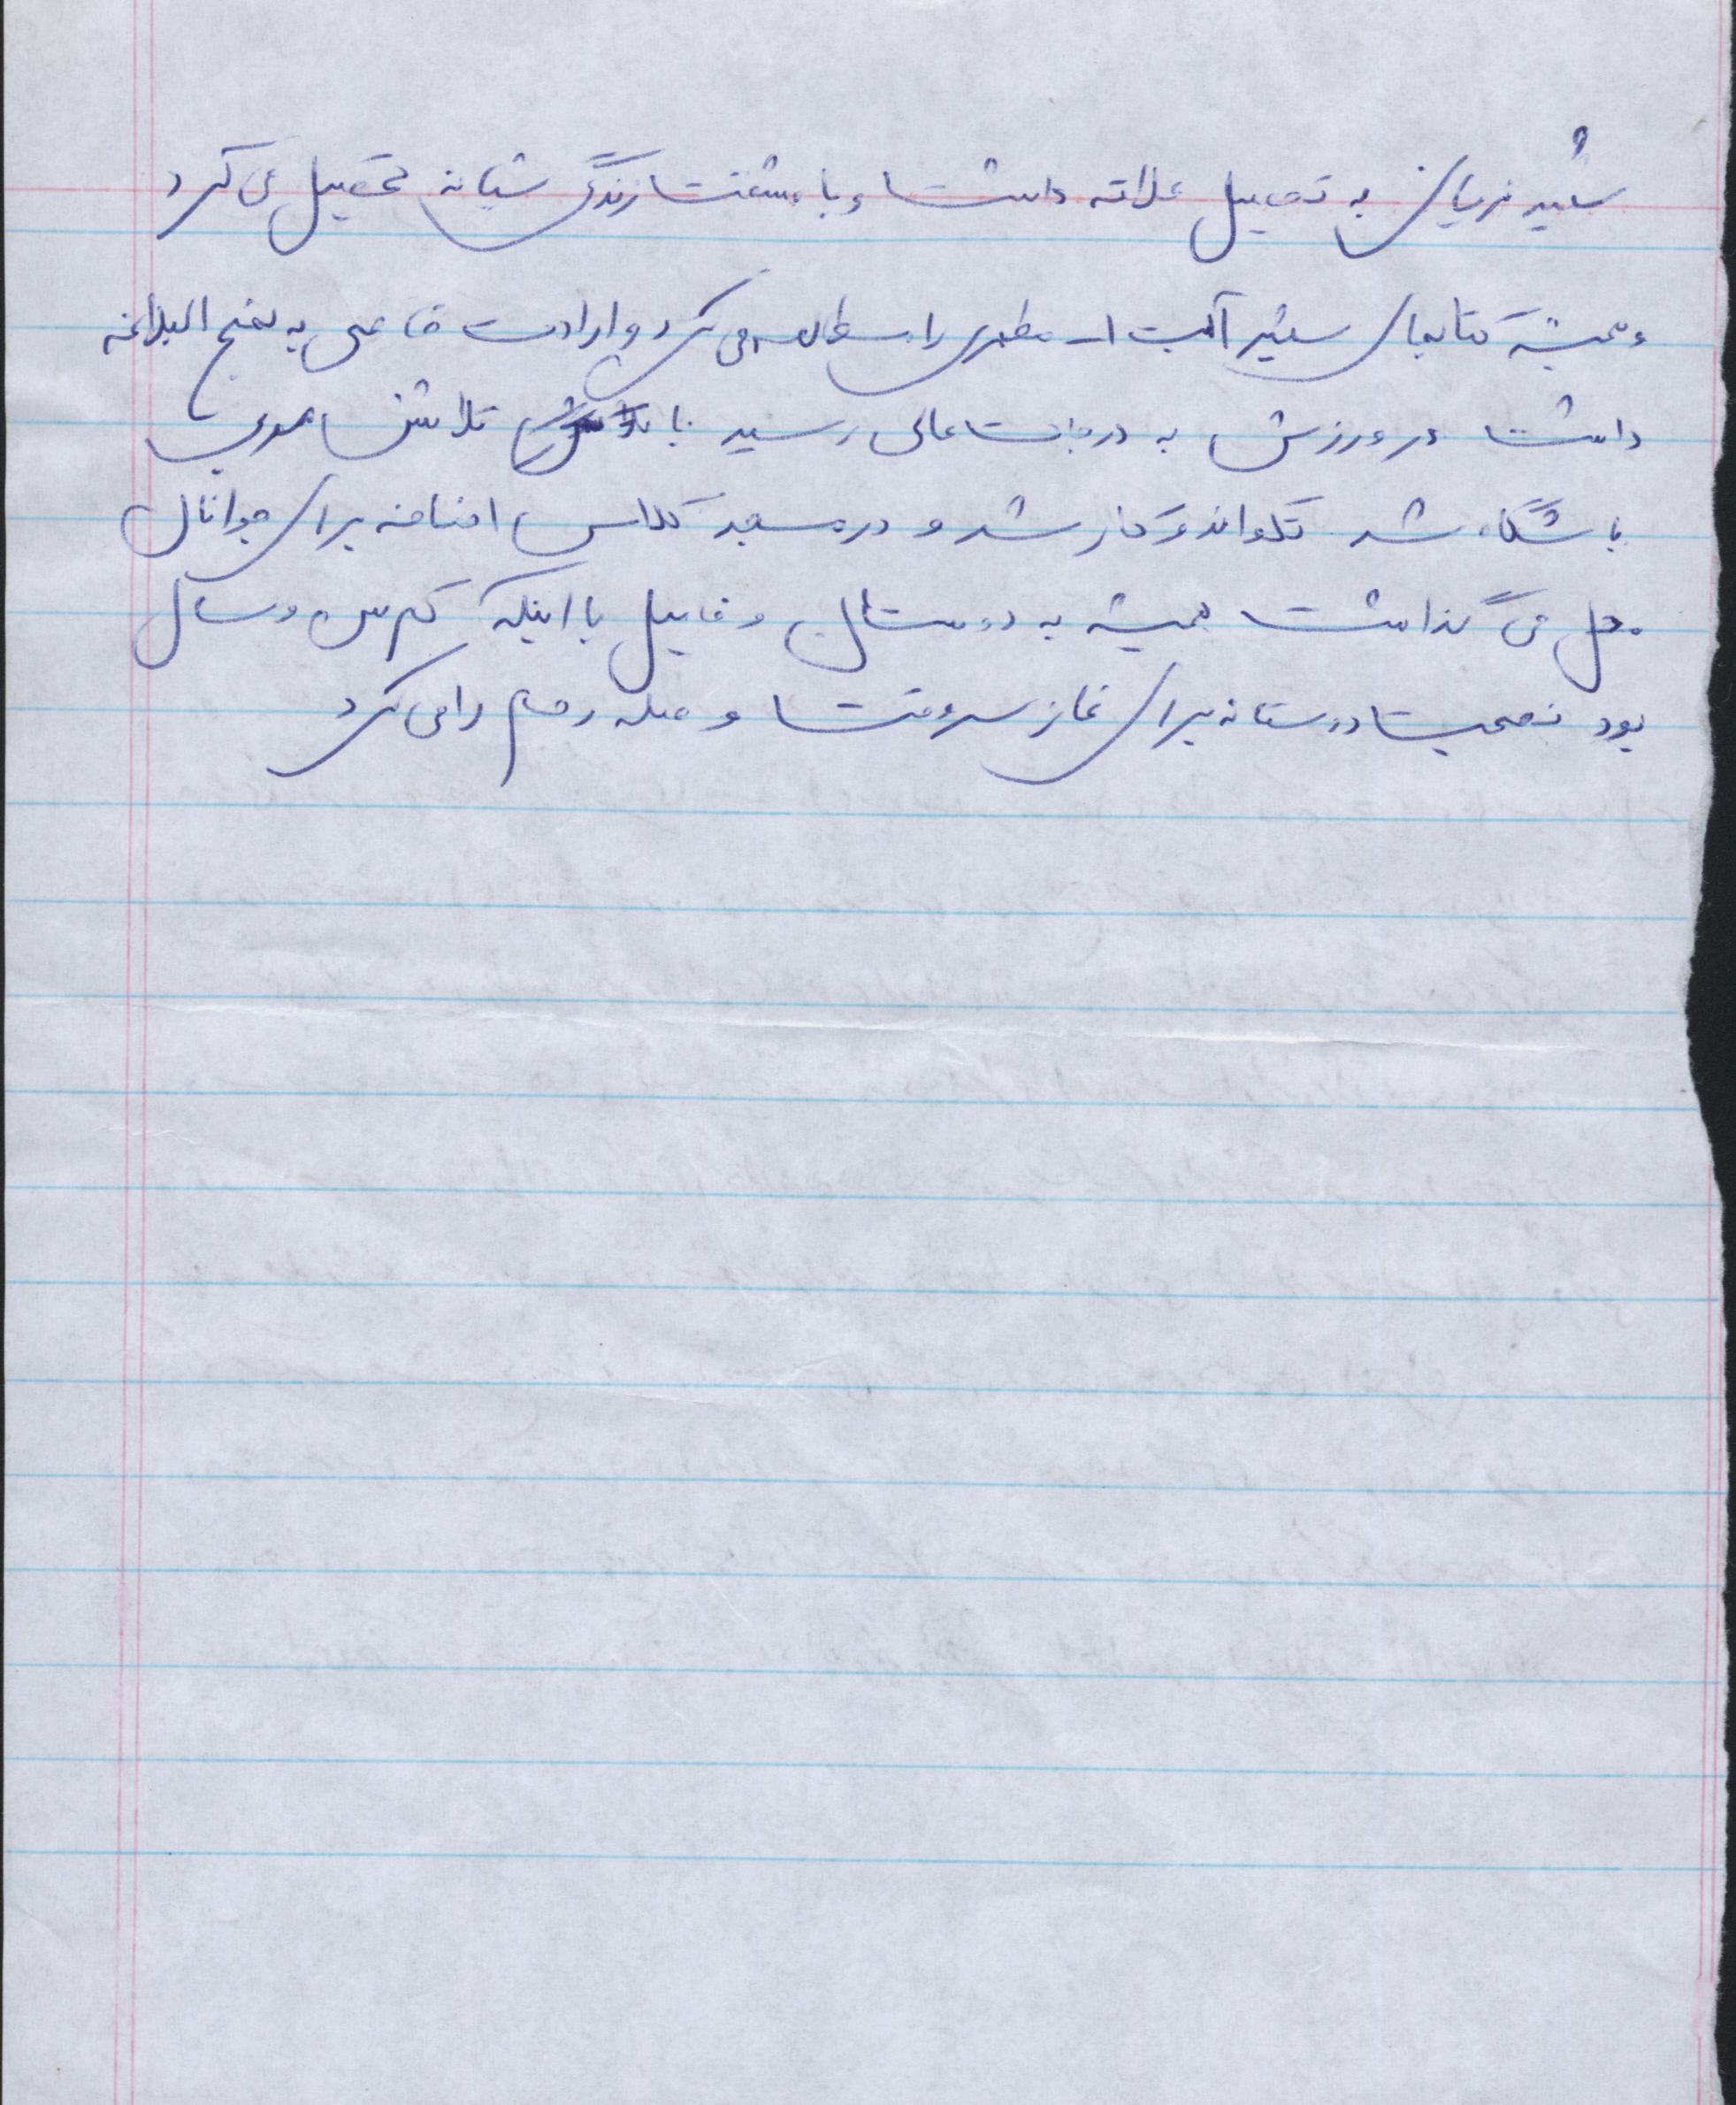 شهید به تحصیل علاقه داشت و با مشقت زندگی شبانه تحصیل می کرد
و همیشه کتابهای شهید آیت ا... مطهری را مطالعه می کرد و ارادت خاصی به نهج البلاغه
داشت در ورزش به درجات عالی رسید با تلاش
باشگاه شد تکواندو کار شد و در مسجد کلاس اضافه برای جوانان
محل می گذاشت همیشه به دوستان و فامیل با اینکه کم سن و سال
بود نصحیت دوستانه برای نماز سروقت و صله رحم را می کرد